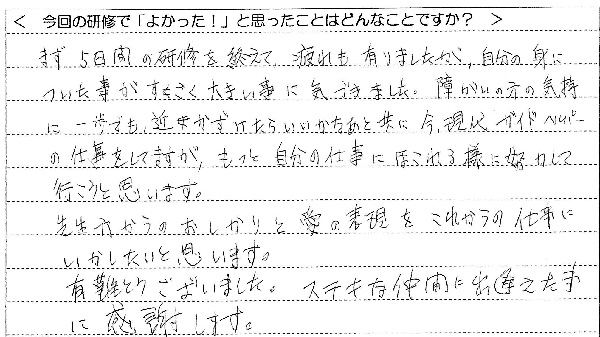 < 今回の研修で「よかった!」と思ったことはどんなことですか? >
まず 5日間の研修を終えて 疲れも有りましたが、自分の身に
ついた事がすごく大きい事に気づきました。障がいの方の気持
に一歩でも、近ずかずけたらいいかなあと共に今、現状ガイドヘルパー
の仕事をしてますが、もっと自分の仕事にほこれる様に努力して
行こうと思います。
先生方からのおしかりと愛の表現をこれからの仕事に
いかしたいと思います。
有難とうございました。ステキな仲間に出逢えた事
に感謝します。